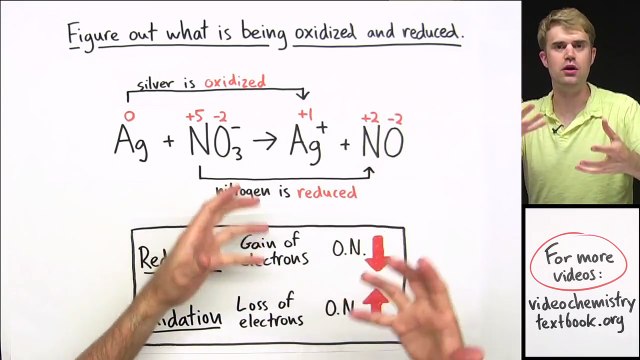 Figure out what is being oxidized and reduced.
silver is oxidized
0 +5 -2 +1 +2 -2
Ag + NO₃⁻ → Ag⁺ + NO
nitrogen is reduced
Gain of electrons O.N.
Loss of electrons O.N.
For more
videos:
videochemistry
textbook.org